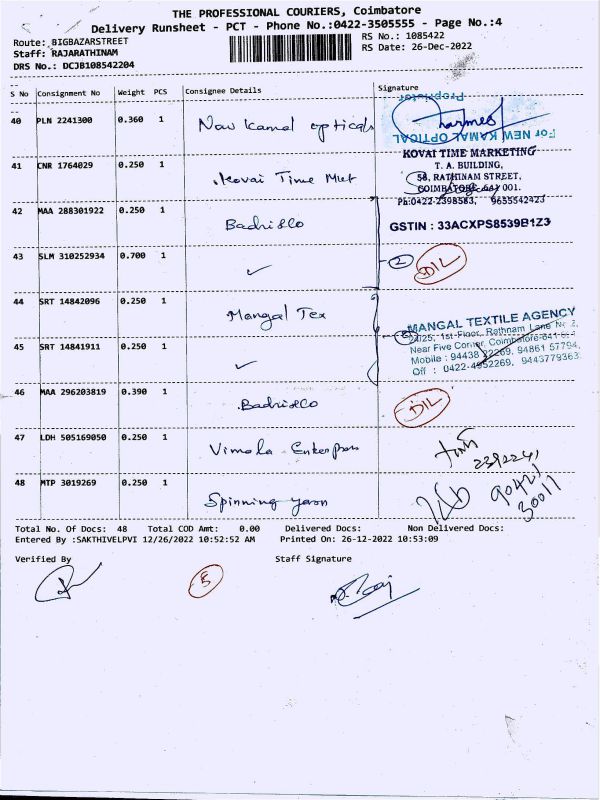 THE PROFESSIONAL COURIERS, Coimbatore
Delivery Runsheet - PCT - Phone No.:0422-3505555 - Page No.:4
Route: BIGBAZARSTREET
Staff: RAJARATHINAM
DRS No.: DCJB108542204
RS No.: 1085422
RS Date: 26-Dec-2022
S No Consignment No Weight PCS Consignee Details Signature
40 PLN 2241300 0.360 1 New Kamal opticals
Proprietor
For NEW KAMAL OPTICAL
41 CNR 1764029 0.250 1 Kovai Time Mket
KOVAI TIME MARKETING
T. A. BUILDING,
58, RATHINAM STREET,
COIMBATORE-641 001.
Ph:0422-2398583, 9655542423
42 MAA 288301922 0.250 1 Badri&Co
GSTIN : 33ACXPS8539B1Z3
43 SLM 310252934 0.700 1 ✓ 2 DIL
44 SRT 14842096 0.250 1 Mangal Tex
MANGAL TEXTILE AGENCY
24/25, 1st Floor, Rathnam Lane No 2,
Near Five Corner, Coimbatore-641 001
Mobile : 94438 22269, 94861 57794,
Off : 0422-4952269, 9443779363
45 SRT 14841911 0.250 1 ✓
46 MAA 296203819 0.390 1 Badri&Co DIL
47 LDH 505169050 0.250 1 Vimala Enterprses
2392241
48 MTP 3019269 0.250 1 Spinning yarn
90421
30011
Total No. Of Docs: 48 Total COD Amt: 0.00 Delivered Docs: Non Delivered Docs:
Entered By :SAKTHIVELPVI 12/26/2022 10:52:52 AM Printed On: 26-12-2022 10:53:09
Verified By Staff Signature
5